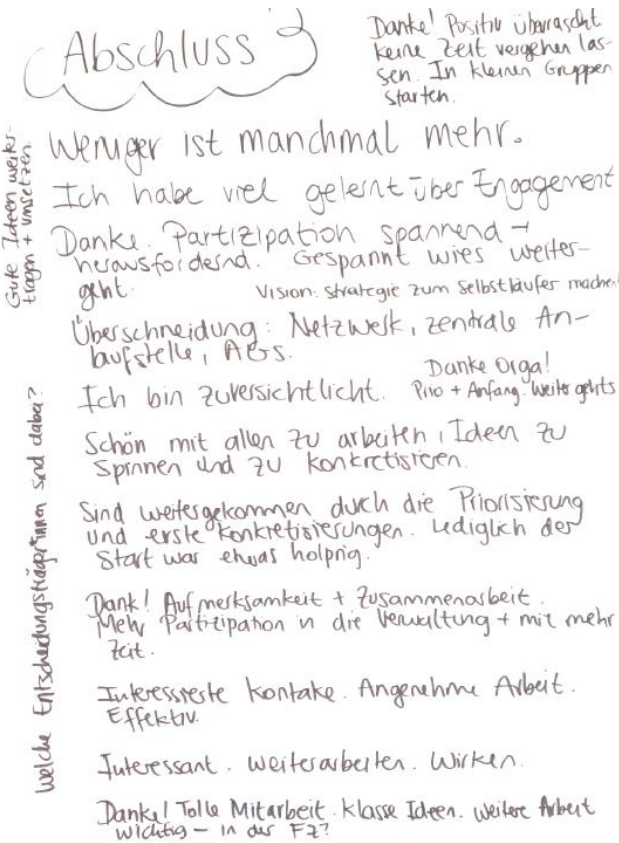 Abschluss
Danke! Positiv überrascht
keine Zeit vergehen las-
sen. In kleinen Gruppen
starten.
Weniger ist manchmal mehr.
Ich habe viel gelernt über Engagement
Danke. Partizipation spannend +
herausfordernd. Gespannt wies weiter-
geht.
Vision: Strategie zum Selbstläufer machen
Überschneidung: Netzwerk, zentrale An-
laufstelle, AGs.
Danke Orga!
Ich bin zuversichtlicht. Prio + Anfang. Weiter gehts
Schön mit allen zu arbeiten, Ideen zu
spinnen und zu konkretisieren.
Sind weitergekommen durch die Priorisierung
und erste Konkretisierungen. Lediglich der
Start war etwas holprig.
Dank! Aufmerksamkeit + Zusammenarbeit.
Mehr Partizipation in die Verwaltung + mit mehr
Zeit.
Interessierte Kontake. Angenehme Arbeit.
Effektiv.
Interessant. Weiterarbeiten. Wirken.
Danke! Tolle Mitarbeit. Klasse Ideen. Weitere Arbeit
wichtig – in der FZ?
Gute Ideen weiter-
tragen + umsetzen.
Welche Entscheidungsträger*innen sind dabei?